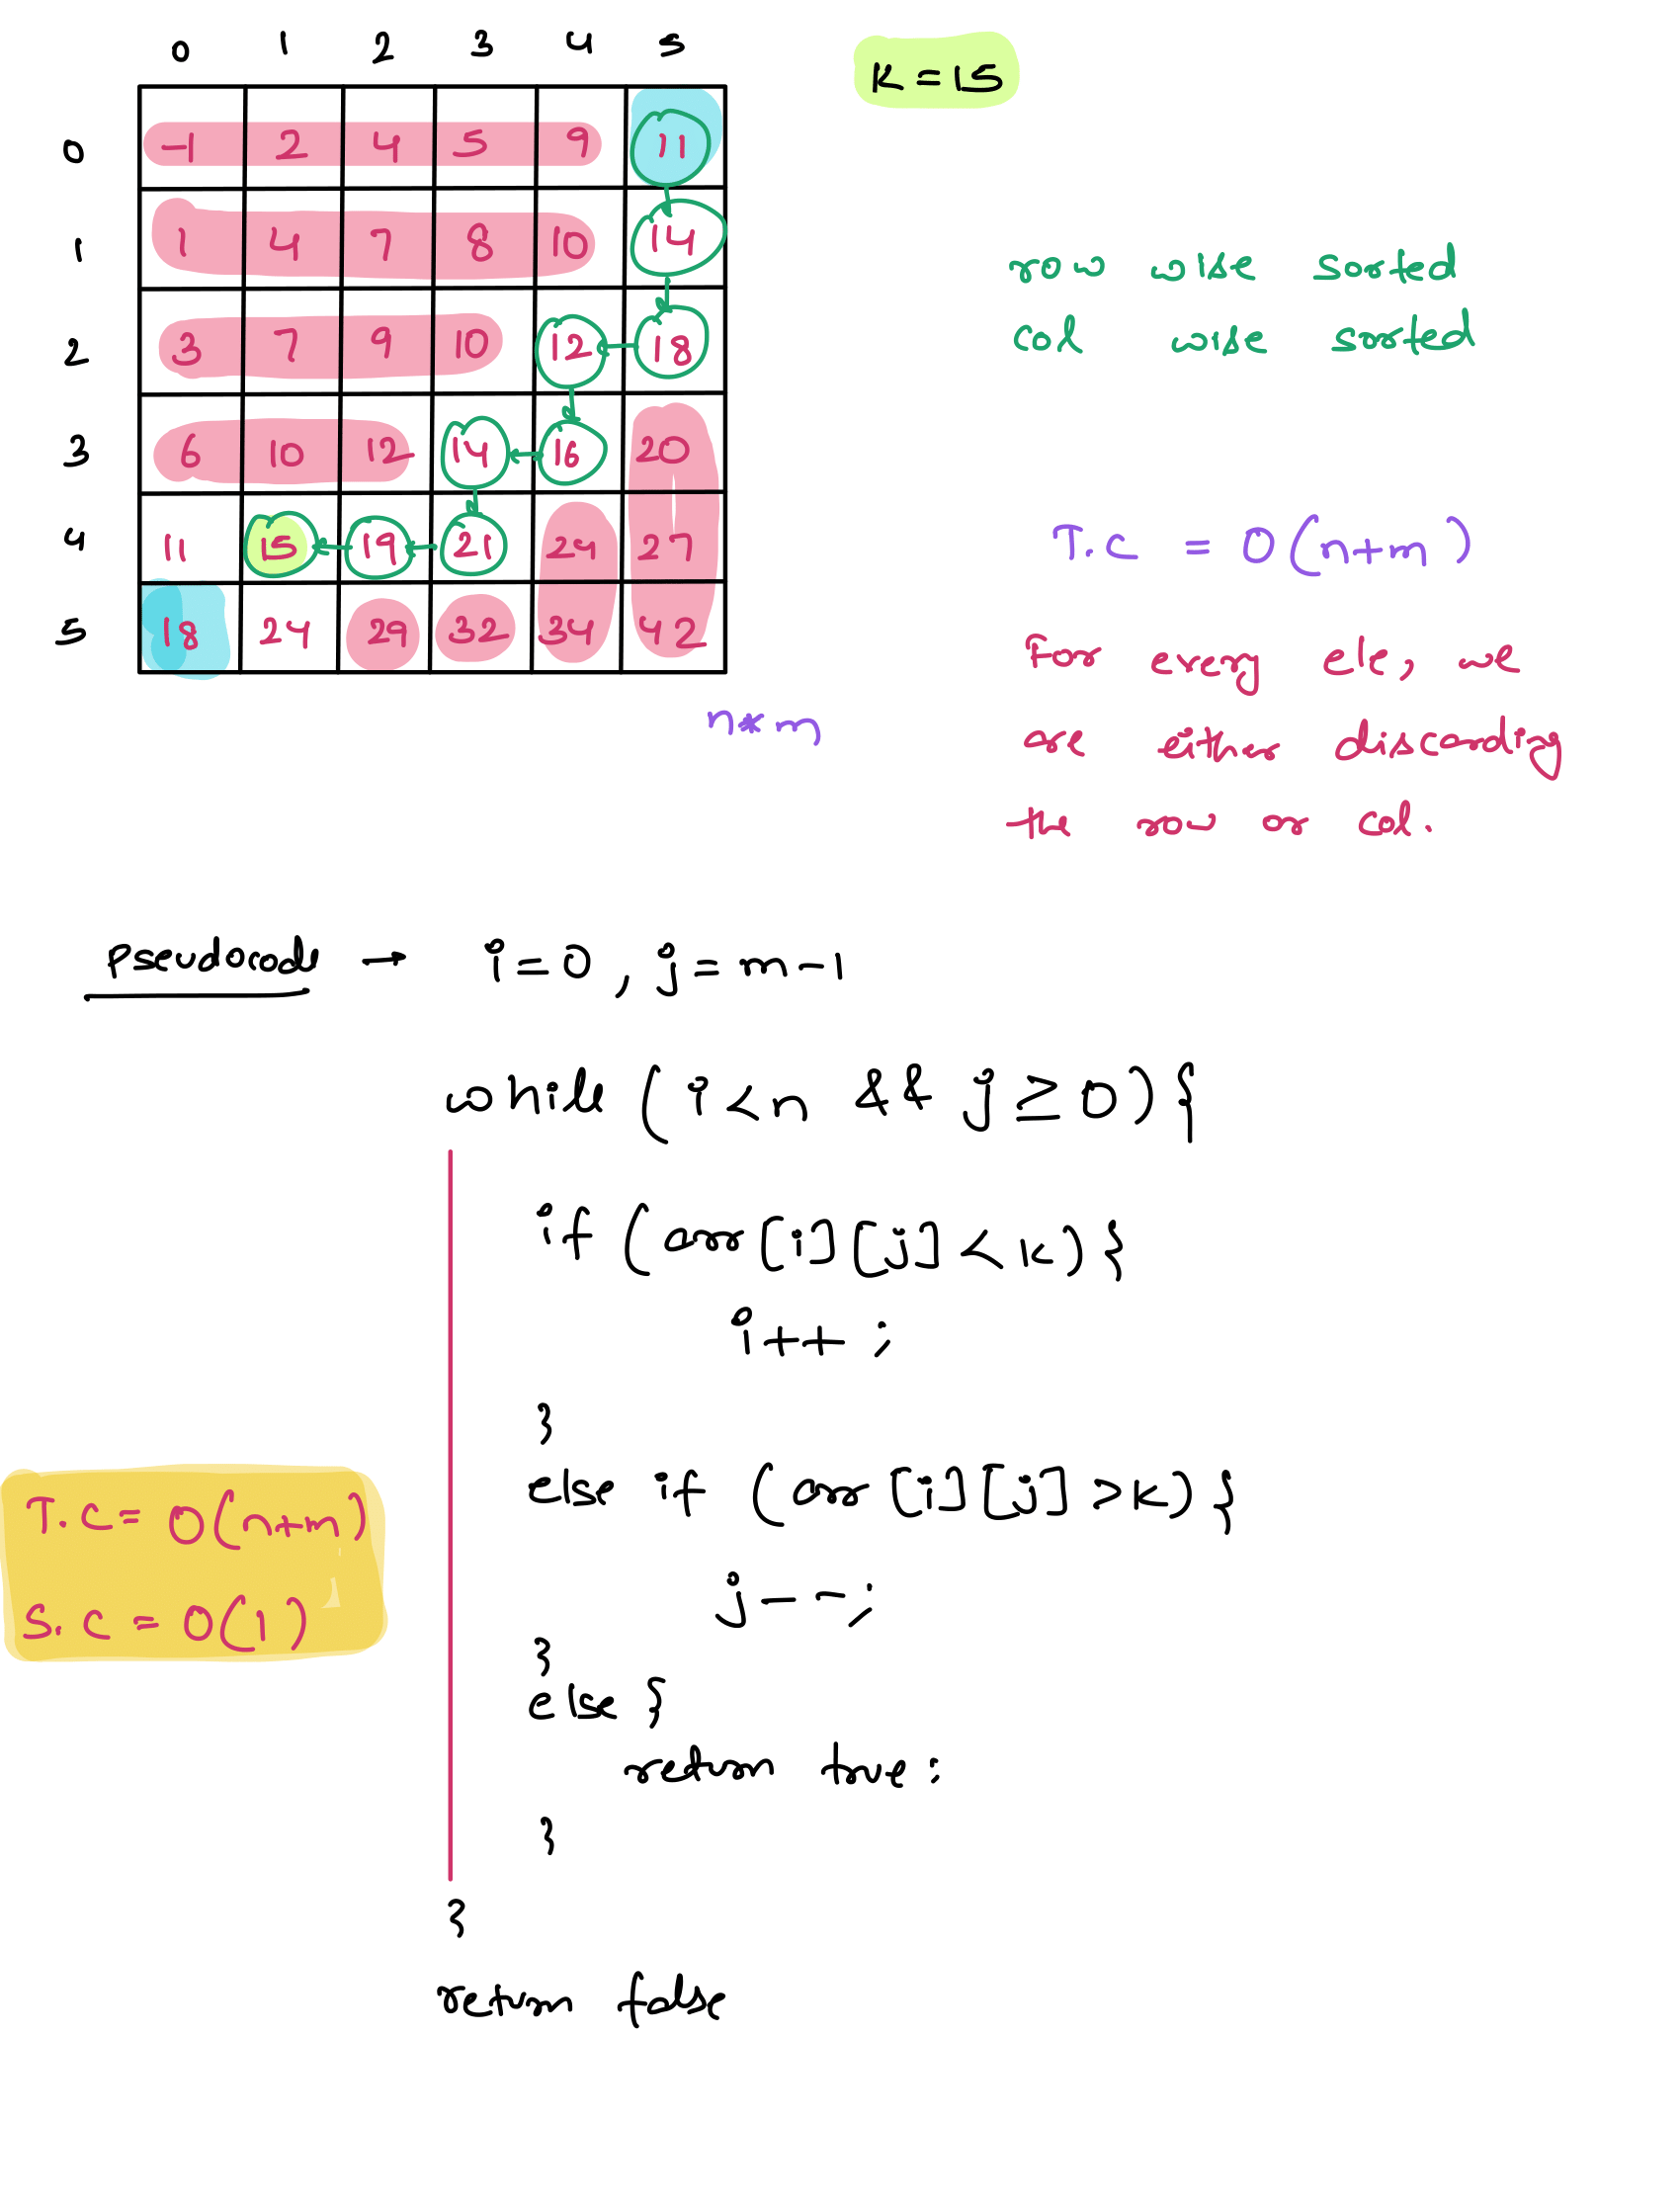 0 1 2 3 4 5
K = 15
0 -1 2 4 5 9 11
1 1 4 7 8 10 14
2 3 7 9 10 12 18
3 6 10 12 14 16 20
4 11 15 19 21 24 27
5 18 24 29 32 34 42
n*m
row wise sorted
col wise sorted
T.C = O(n+m)
For every ele, we
are either discarding
the row or col.
Pseudocode → i=0, j=m-1
while (i<n && j≥0){
if (arr[i][j]<k){
i++;
}
else if (arr[i][j]>k){
j--;
}
else {
return true;
}
}
return false
T.C= O(n+m)
S.C = O(1)